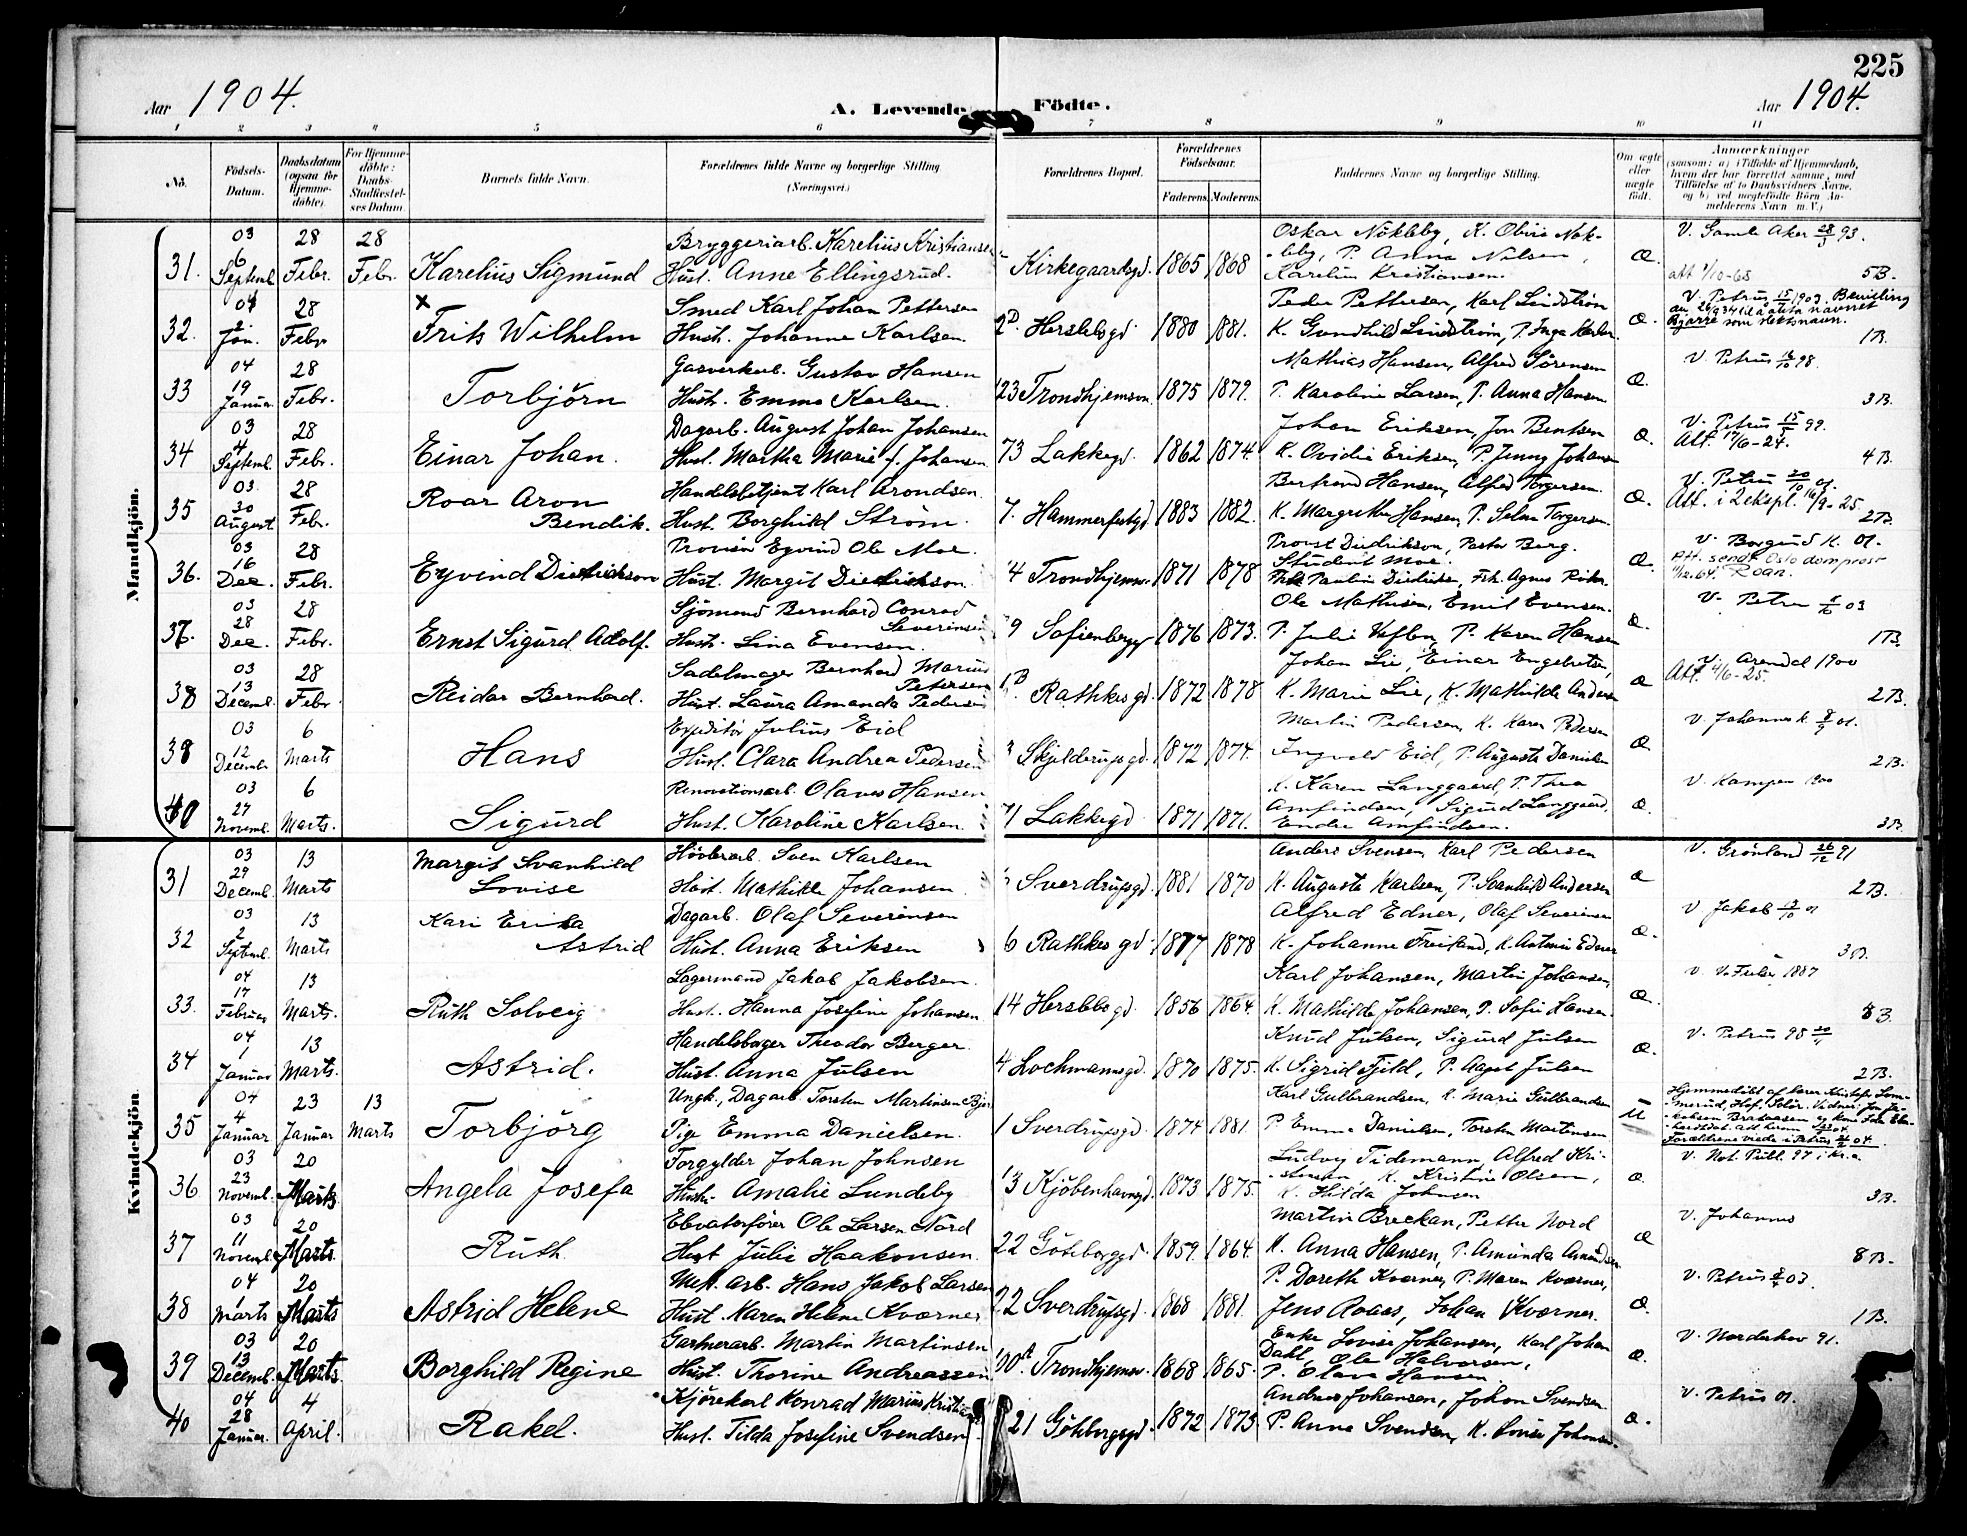 225
Aar 1904.
A. Levende Födte.
Aar 1904.
1 2 3 4 5 6 7 8 9 10 11
No.
Födsels-Datum.
Daabsdatum (ogsaa for Hjemme-döbte).
For Hjemme-döbte: Daabs-Stadfæstel-ses Datum.
Barnets fulde Navn.
Forældrenes fulde Navne og borgerlige Stilling (Næringsvei.)
Forældrenes Bopæl.
Forældrenes Födselsaar.
Faderens. Moderens.
Faddernes Navne og borgerlige Stilling.
Om ægte eller uægte födt.
Anmærkninger
(saasom: a) i Tilfælde af Hjemmedaab, hvem der har forrettet samme, med Tilföielse af to Daabsvidners Navne, og b) ved uegtefödte Börn An-melderens Navn m. V.)
Mandkjön.
03 28 28 Bryggeriarb. Karelius Kristiansen Oskar Nökleby, K. Olivia Nök- V. Gamle Aker 28/5 93.
31. 6 Septemb. Febr. Febr. Karelius Sigmund Hust. Anne Ellingsrud. Kirkegaardsgd. 1865 1868 -leby, P. Anna Nilsen, Æ.
Karelius Kristiansen. att 1/10-65 5B.
04 28 x Smed Karl Johan Pettersen Peder Pettersen, Karl Lindström V. Petrus 15/11 1903. Bevilling
32. 2 Jan. Febr Frits Wilhelm Hust. Johanne Karlsen. 2D Herslebsgd 1880 1881. K. Gundhild Lindström, P. Inga Karlsen Æ. Bjarre som slektsnavn. 1B.
04 28 Gasverkarb. Gustav Hansen Mathias Hansen, Alfred Sörensen V. Petrus 16/10 98.
33 19 Januar Febr. Torbjörn Hust. Emma Karlsen. 23 Trondhjemsvn. 1875 1879. P. Karoline Larsen, P. Anna Hansen Æ. 3B.
03 28 Dagarb. August Johan Johansen Johan Eriksen, Jon Bentsen V. Petrus 15/5 99.
34 4 Septemb. Febr. Einar Johan. Hust. Martha Marie f. Johansen. 73 Lakkegd. 1862 1874. K. Ovidie Eriksen, P. Jenny Johansen Æ. Att. 17/6-24. 4B.
03 28 Handelsbetjent Karl Arondsen. Bertrand Hansen, Alfred Torgersen. V. Petrus 20/10 01.
35 30 August. Febr. Roar Aron Bendik. Hust. Borghild Ström. 7. Hammerfestgd. 1883 1882. K. Margrethe Hansen, P. Selma Torgersen Æ. Att. i 2 ekspl. 16/9-25. 2B.
03 28 Provisor Eyvind Ole Moe. Provst Diedrikson, Pastor Berg. V. Borgund K. 01.
36. 16 Dec. Febr. Eyvind Diedrichson Hust. Margit Diedrichson. 4 Trondhjemsv. 1871 1878 Student Moe. Æ. Att. sendt Oslo domprost
11/12.64. Roar.
03 28 Sjömand Bernhard Conrad Severinsen Ole Mathisen, Emil Evensen. V. Petrus 03
37. 28 Dec. Febr. Ernst Sigurd Adolf. Hust. Lina Evensen. 9 Sofienbergg 1876 1873. P. Karen Hansen Æ. 1B.
03 28 Sadelmager Bernhard Marius Petersen Johan Lie, Einar Engebretsen, V. Arendal 1900
38 13 Decemb. Febr Reidar Bernhard. Hust. Laura Amanda Pedersen Rathkes gd. 1872 1878 K. Marie Lie, K. Mathilde Andersen Æ Att. 4/6-25. 2B.
03 6 Expeditör Julius Eid Martin Pedersen, K. Karen Pedersen V. Johannes K 01.
39 12 Decembr Marts Hans Hust. Clara Andrea Pedersen Skjelderupsgd. 1872 1874. Ingvald Eid, P. Augusta Danielsen Æ 2B.
03 6 Renovationsarb. Olaves Hansen K. Karen Langgaard, P. Thea V. Kampen 1900
40 27 Novemb. Marts. Sigurd Hust. Karoline Karlsen. 71 Lakkegd 1871 1871. Arnfindsen, Sigurd Langgaard, Æ.
Endre Arnfindsen. 3B.
Kvindekjön.
03 13 Hövlerarb. Sven Karlsen Anders Svensen, Karl Pedersen V. Grönland 26/12 91
31 29 Decemb. Marts Margit Svanhild Lovise Hust. Mathilde Johansen. Sverdrupsgd. 1881 1870 K. Augusta Karlsen, P. Svanhild Andersen Æ 2B.
03 13 Dagarb. Olaf Severinsen Alfred Edner, Olaf Severinsen V Jakob 01
32 2 Septemb. Marts Kari Erika Astrid Hust. Anna Eriksen 6 Rathkes gd. 1877 1878 K. Johanne Freiland, K. Antonie Edner Æ. 3B.
04 13 Lagermand Jakob Jakobsen. Karl Johansen, Martin Johansen, V 1887
33. 17 Februar Marts. Ruth Solveig Hust. Hanna Josefine Johansen 14 Herslebs gd. 1856 1864. K. Mathilde Johansen, P. Sofie Hansen. Æ. 8B.
04 13 Handelsborger Theodor Berger. Knud Julsen, Sigurd Julsen V. Petrus 98
34 1 Januar Marts. Astrid. Hust. Anna Julsen 4 Lochmannsgd. 1870 1875. K. Sigrid Fjeld, P. Aagot Julsen Æ. 2B.
04 23 13 Ungk., Dagarb. Torsten Martinsen Karl Gulbrandsen, K. Marie Gulbrandsen Hjemmedöbt af
35 4 Januar Januar Marts Torbjörg Pige Emma Danielsen. 1 Sverdrupsgd. 1874 1881. P. Emma Danielsen, Torsten Martensen U Forældrene viede i Petrus 04
03 20 Forgylder Johan Johnsen Ludvig Tidemann, Alfred Kri- V. Not. Publ. 97 i Kr.a
36 23 Novemb. Marts. Angela Josefa Hust. Amalie Lundeby 13 Kjöbenhavnsgd. 1873 1875. K. Kristine Olsen, Æ.
K. Hilda Johnsen 3B.
03 20 Elevatorförer Ole Larsen Nord Martin Breckan, Petter Nord V. Johannes
37 11 Novemb. Marts. Ruth Hust Julie Haakonsen. 22 Göteborggd. 1859. 1864. K. Anna Hansen, P. Amunda Amundsen Æ 8B.
04 20 Mek. arb. Hans Jakob Larsen P. Dorath Kværner, P. Maren Kværner, V. Petrus 03.
38 1 Marts Marts Astrid Helene Hust. Karen Helene Kværner 22 Sverdrupsgd. 1868 1881. Jens Roaas, Johan Kværner. Æ. 1B.
03 20 Gartnerarb. Martin Martinsen Enke Lovise Johansen, Karl Johan V. Norderhov 91.
39 13 Decemb. Marts. Borghild Regine Hust. Thorine Andreassen 20A Trondhjemsv. 1868 1865. Dahl, Ole Halvorsen, Æ.
P. Olava Hansen
04 4 Kjörekarl Konrad Marius Andreas Johansen, Johan Svendsen. V. Petrus 01.
40 28 Januar. April. Rakel. Hust. Tilda Josefine Svendsen 21 Göteborgsgd. 1872 1873 P. Anna Svendsen, K. Lovise Johansen. Æ.